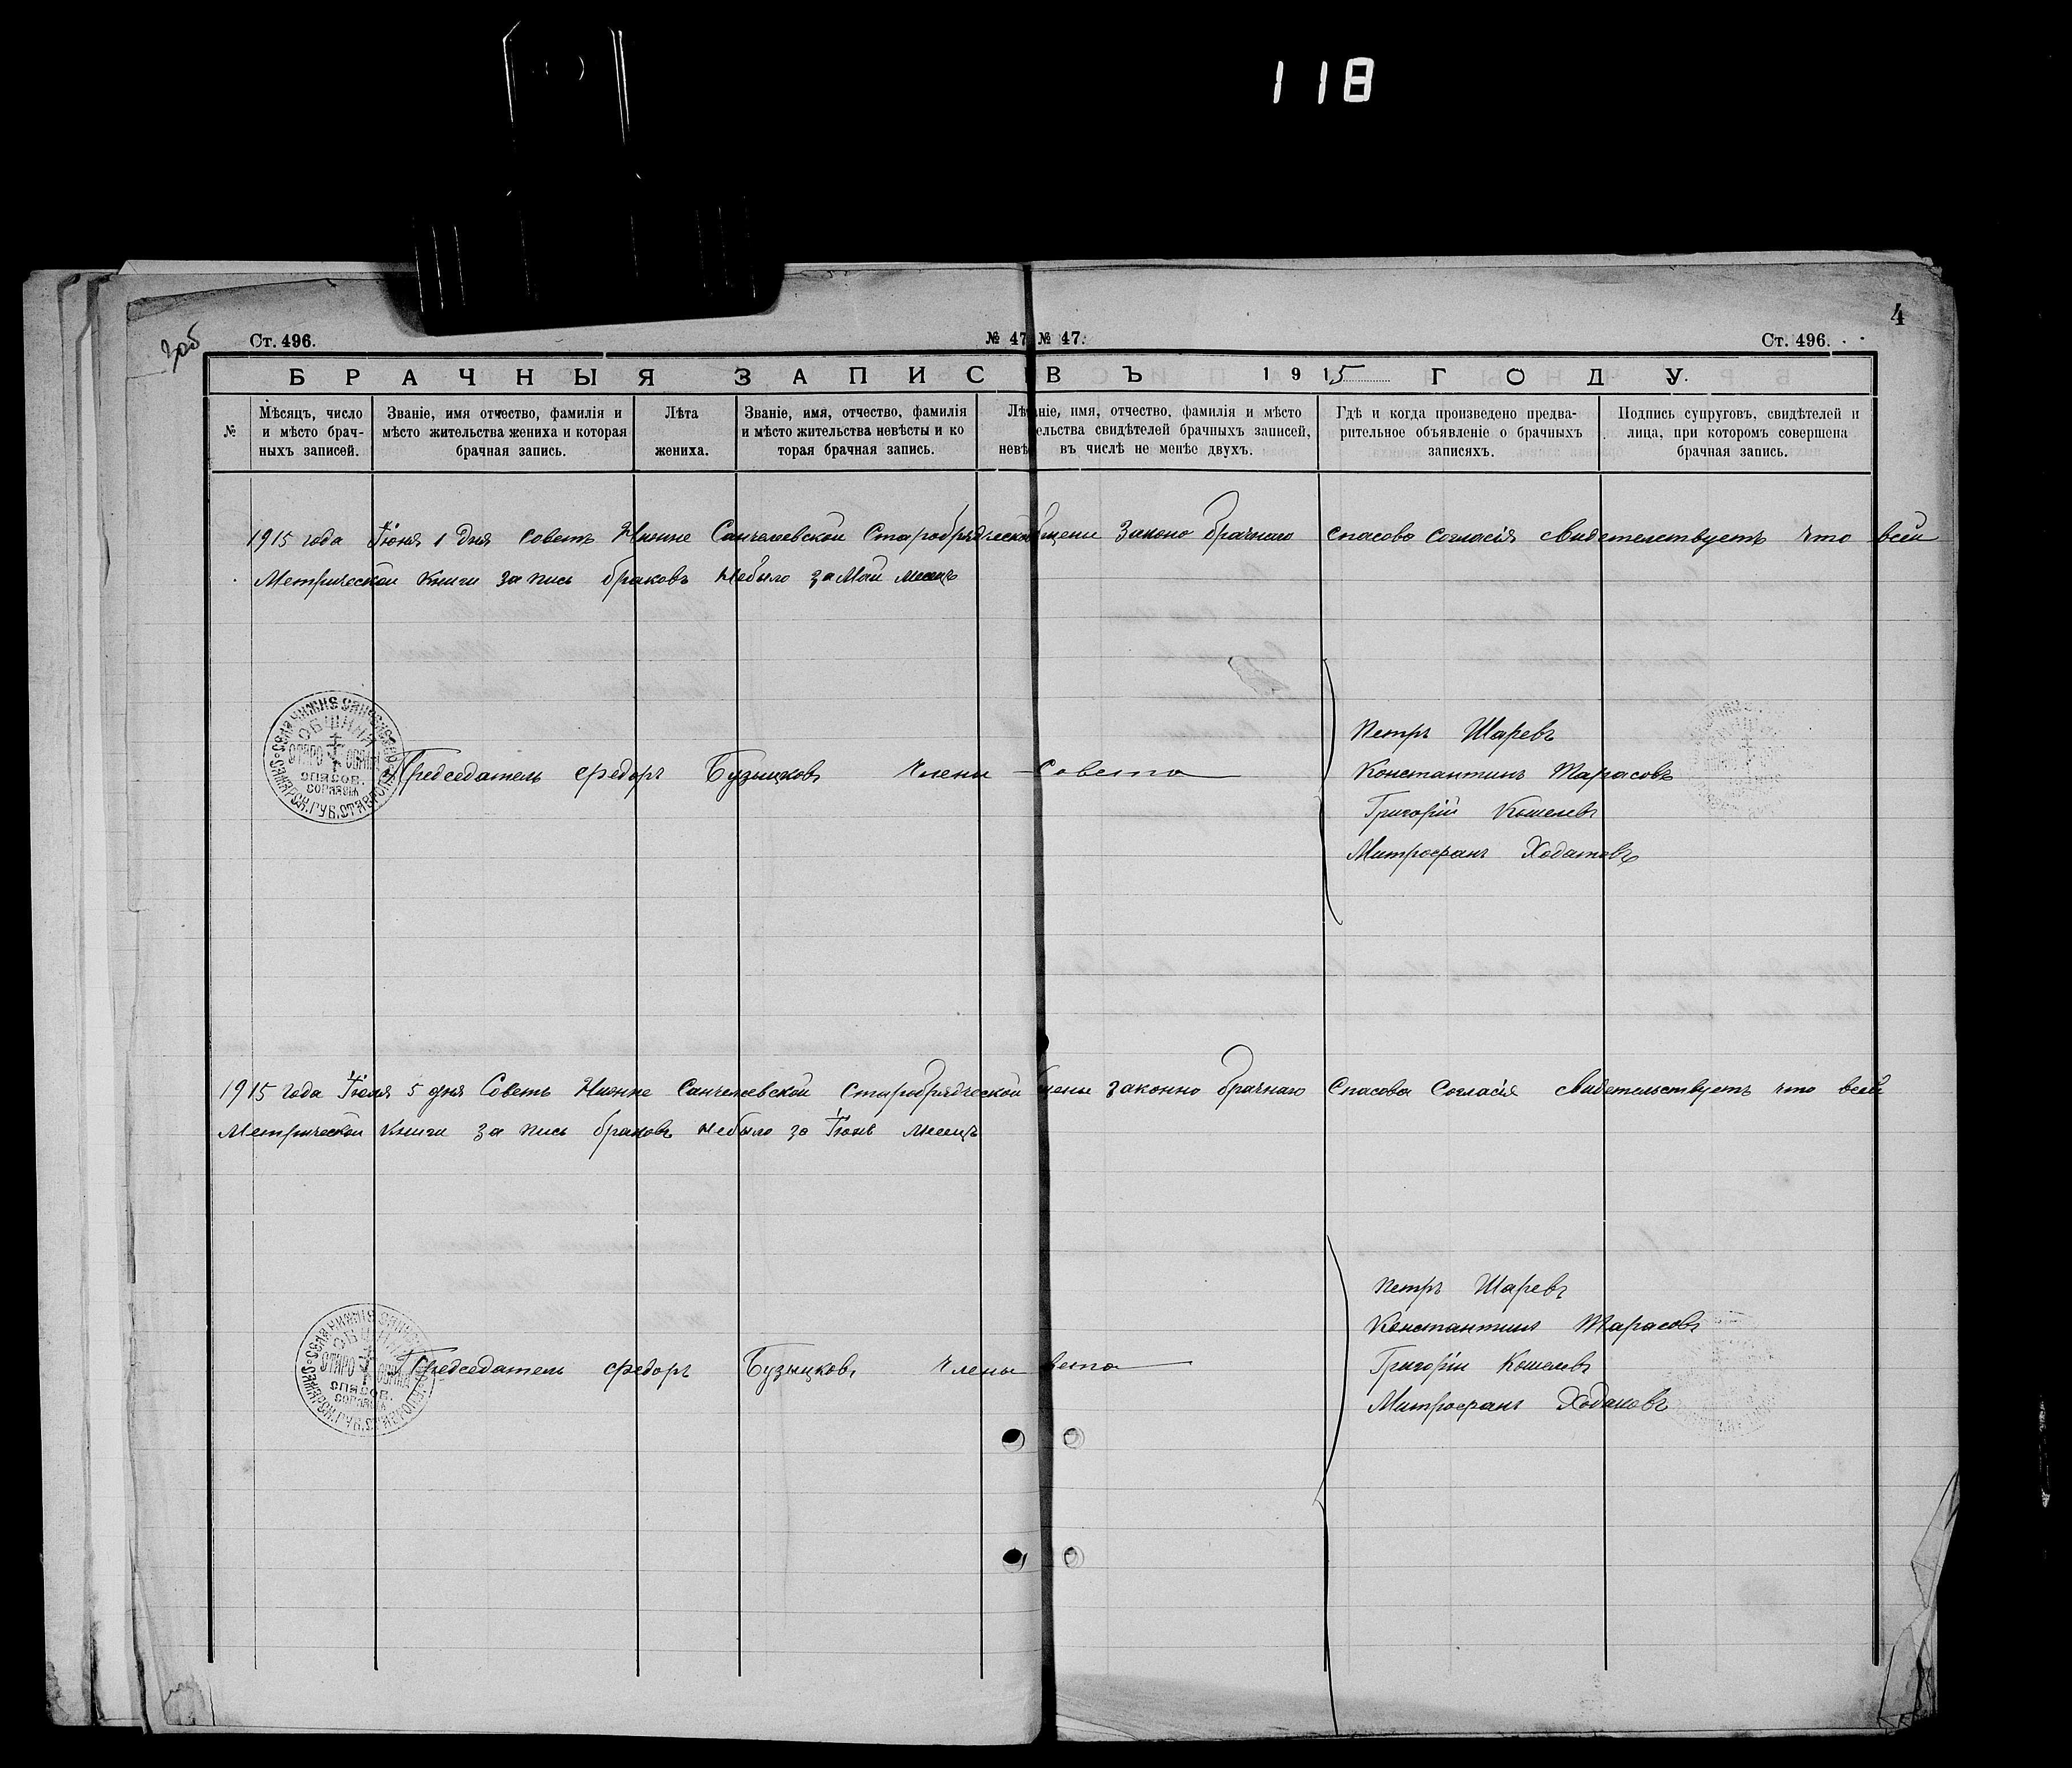 118
4
Ст. 496.
№ 47
№ 47.
Ст. 496.
БРАЧНЫЯ ЗАПИС
ВЪ 1915 ГОДУ.
№
Мѣсяцъ, число
и мѣсто брач-
ныхъ записей.
Званіе, имя отчество, фамилія и
мѣсто жительства жениха и которая
брачная запись.
Лѣта
жениха.
Званіе, имя, отчество, фамилія
и мѣсто жительства невѣсты и ко
торая брачная запись.
Лѣ
невѣ
ніе, имя, отчество, фамилія и мѣсто
ельства свидѣтелей брачныхъ записей,
въ числѣ не менѣе двухъ.
Гдѣ и когда произведено предва-
рительное объявленіе о брачныхъ
записяхъ.
Подпись супруговъ, свидѣтелей и
лица, при которомъ совершена
брачная запись.
1915 года Іюня 1 дня советъ Нижне Санчелеевской Старобрядческой щены Законо брачнаго Спасова Согласія Свидетельствуетъ что всей
Метрической книги за пись браковъ небыло за Май месецъ
Председатель Федоръ Бузыцковъ Члены Совета
Петръ Шаревъ
Константинъ Тарасовъ
Григорій Кошелевъ
Митрофанъ Ходаковъ
ОБЩИНА
СТАРО ОБРЯД
СПАСОВ.
СОГЛАСІЯ
1915 года Іюля 5 дня Советъ Нижне Санчелеевской Старобрядческой щены законно брачнаго Спасова Согласія Свидетельствуетъ что всей
Метрической Книги за пись браковъ небыло за Іюнь месецъ
Председатель Федоръ Бузыцковъ Члены вета
Петръ Шаревъ
Константинъ Тарасовъ
Григоріи Кошелевъ
Митрофанъ Ходаковъ
ОБЩИНА
СТАРО ОБРЯД
СПАСОВ.
СОГЛАСІЯ